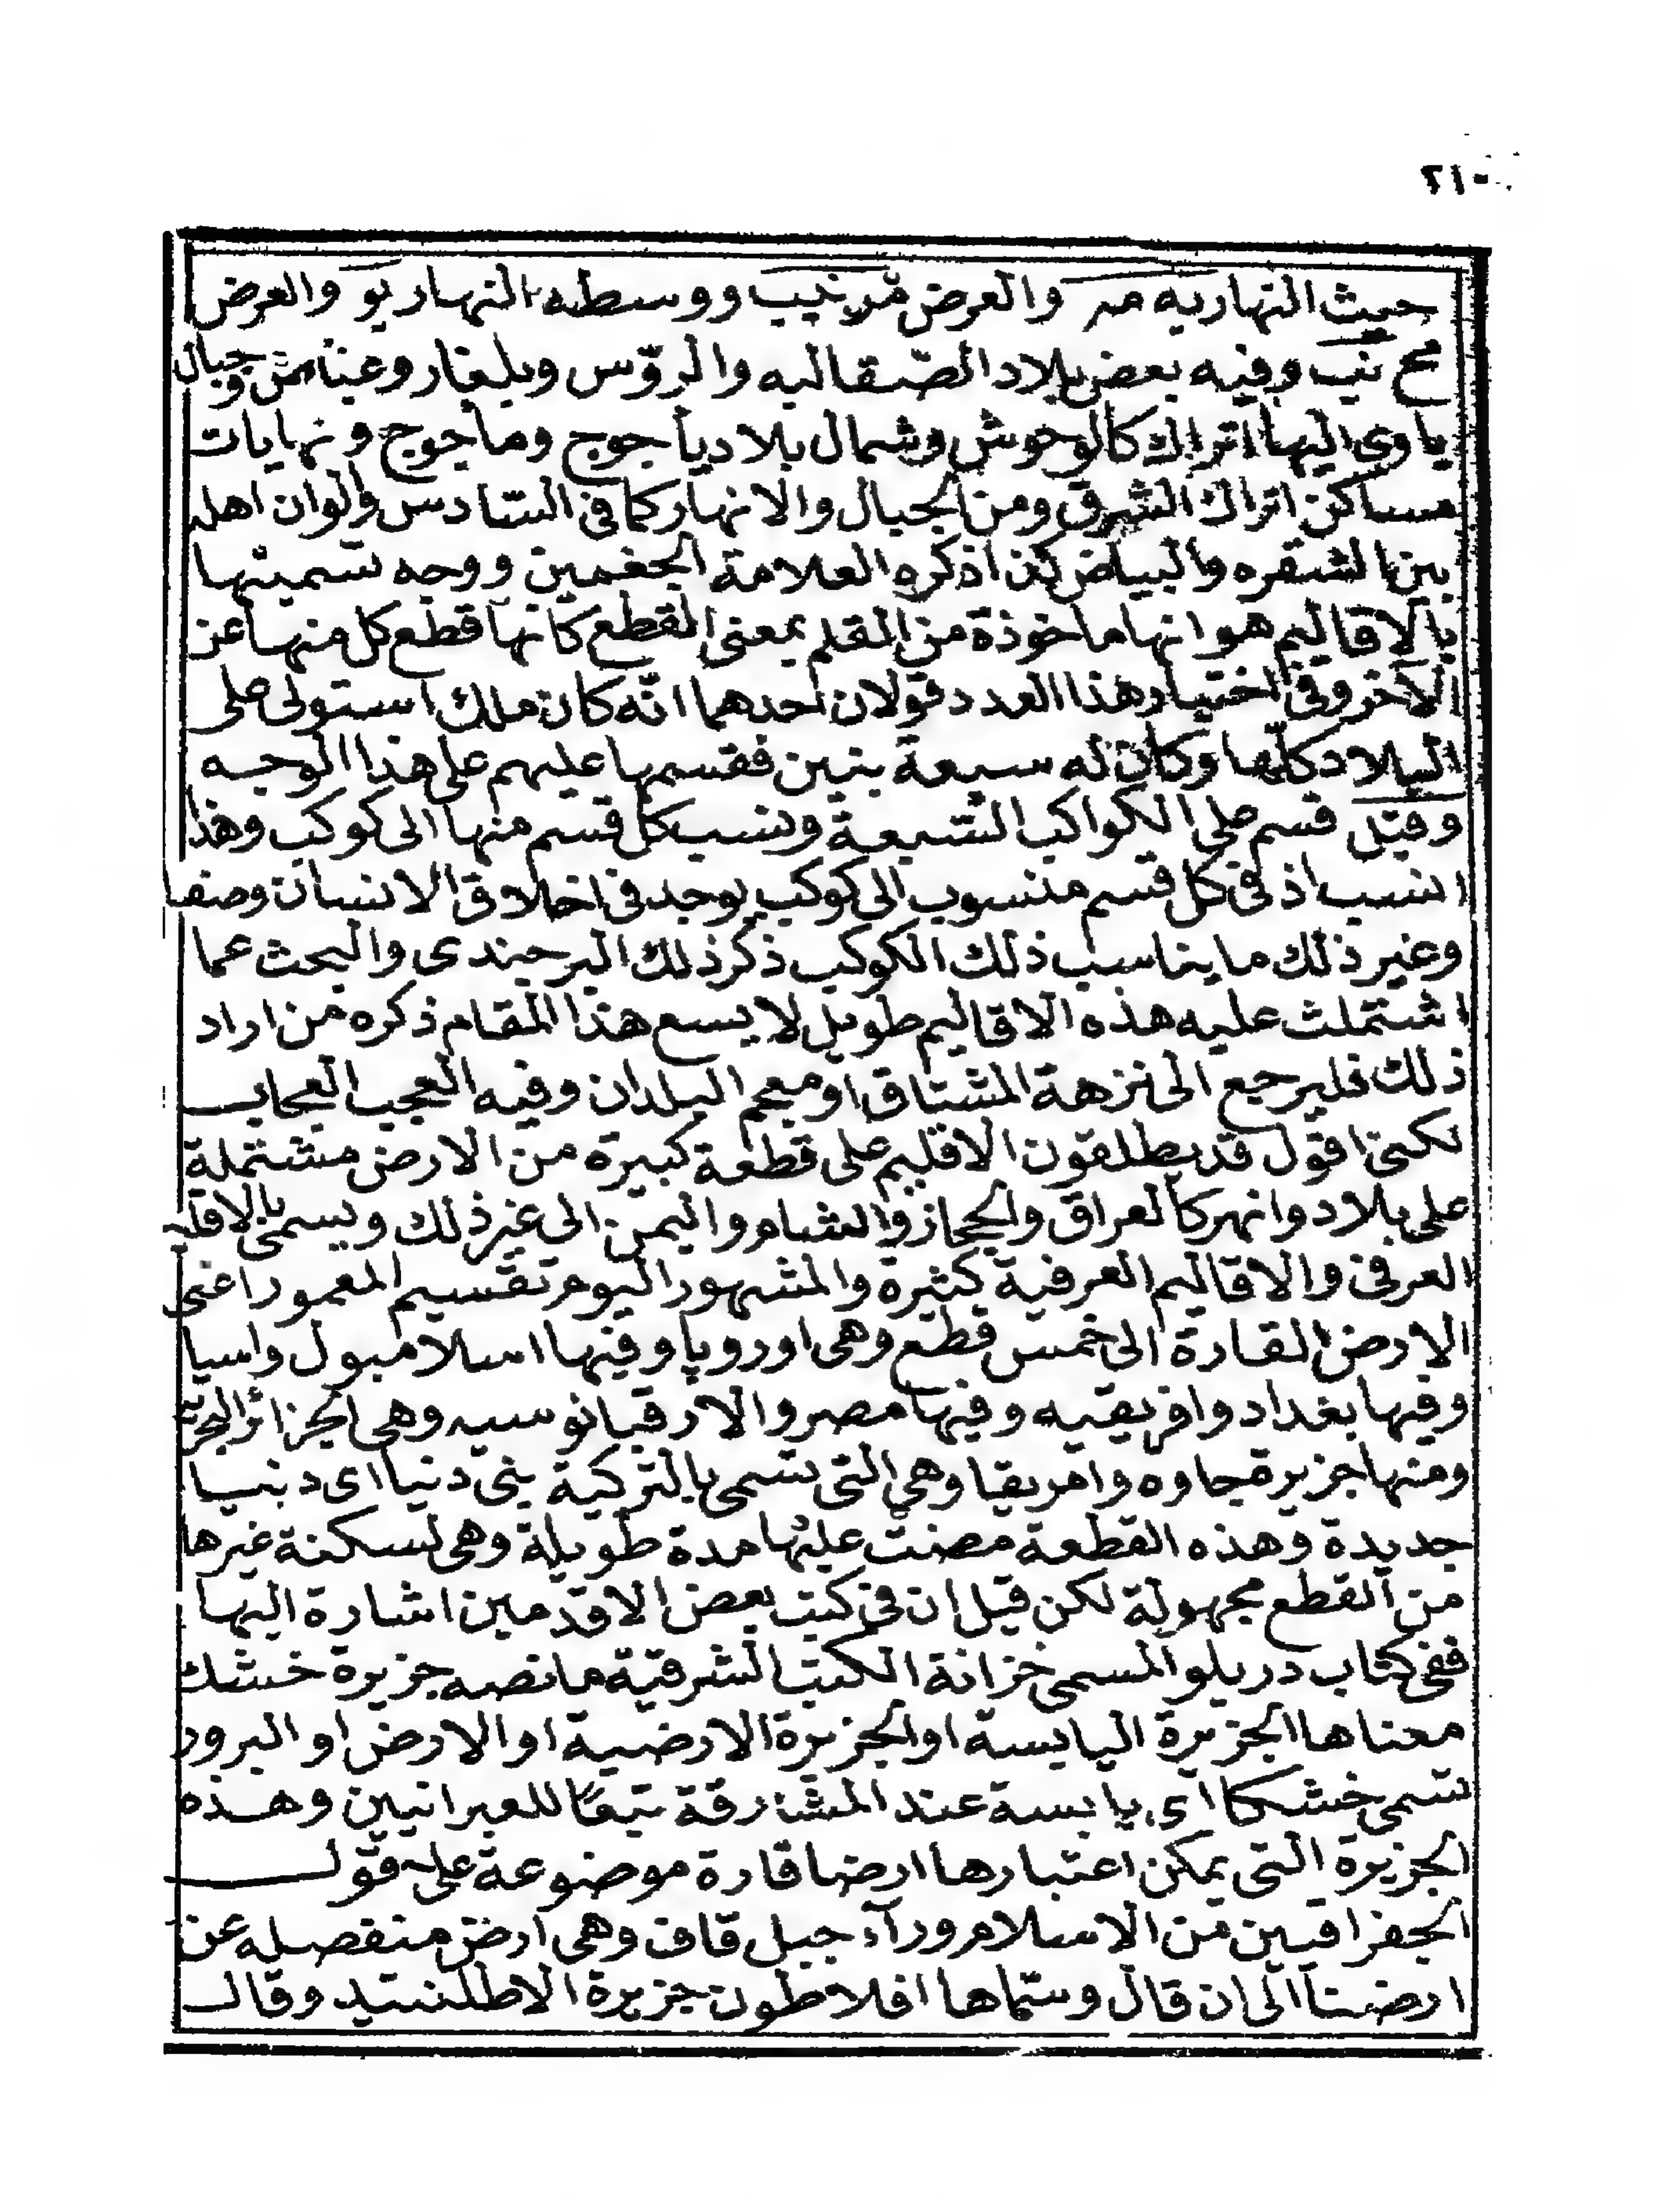 ٢١٠
حيث النهاريه مه والعرض مز نيب ووسطه النهاريو والعرض
مح نيب وفيه بعض بلاد الصّقالبه والروّس وبلغار وغياض وجبال
ياوى اليها اتراك كالوحوش وشمال بلاد يأجوج ومأجوج ونهايات
مساكن اتراك الشرق ومن الجبال والانهار كما فى السّادس والوان اهله
بين الشقره والبياض كذا ذكره العلامة الجغمين ووجه تسميتها
بالاقاليم هو انها ماخوذة من القلم بمعنى القطع كانها قطع كل منها عن
الآخر وفى اختيار هذا العدد قولان احدهما انّه كان ملك استولى على
البلاد كلّها وكان له سبعة بنين فقسمها عليهم على هذا الوجه
وقيل قسم على الكواكب السّبعة ونسب كل قسم منها الى كوكب وهذا
انسب اذ فى كل قسم منسوب الى كوكب يوجد فى اخلاق الانسان وصفا
وغير ذلك ما يناسب ذلك الكوكب ذكر ذلك البرجندى والبحث عما
اشتملت عليه هذه الاقاليم طويل لا يسع هذا المقام ذكره من اراد
ذلك فليرجع الى نزهة المشتاق او معجم البلدان وفيه العجب العجاب
لكنى اقول قد يطلقون الاقليم على قطعة كبيرة من الارض مشتملة
على بلاد وانهر كالعراق والحجاز والشام واليمن الى غير ذلك ويسمى بالاقليم
العرفى والاقاليم العرفية كثيرة والمشهور اليوم تقسيم المعمور اعنى
الارض القارة الى خمس قطع وهى اوروپا وفيها اسلامبول واسيا
وفيها بغداد وافريقيه وفيها مصر والارقيانوسيه وهى الجزائر البحرية
ومنها جزيرة جاوه وامريقا وهى التى تسمى بالتركية ينى دنيا اى دنيا
جديدة وهذه القطعة مضت عليها مدة طويلة وهى لسكنة غيرها
من القطع مجهولة لكن قيل ان فى كتب بعض الاقدمين اشارة اليها
ففى كتاب دربلو المسمى خزانة الكتب الشرقيّة ما نصه جزيرة خشك
معناها الجزيرة اليابسة او الجزيرة الارضية او الارض او البرور
تسمى خشكا اى يابسة عند المشارقة تبعًا للعبرانيين وهذه
الجزيرة التى يمكن اعتبارها ارضا قارة موضوعة على قول
الجغرافيين من الاسلام ورآء جبل قاف وهى ارض منفصله عن
ارضنا الى ان قال وسمّاها افلاطون جزيرة الاطلنتيد وقال